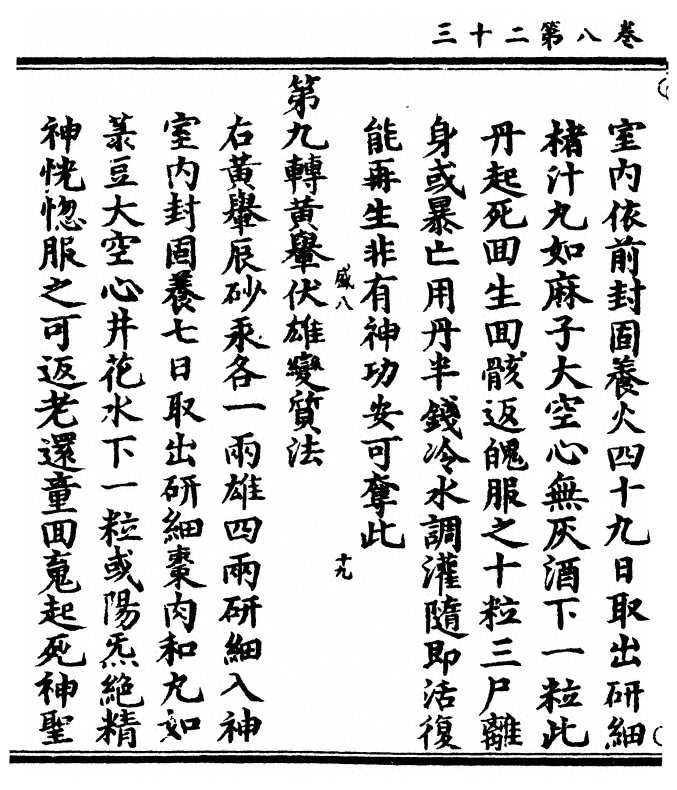 卷八第二十三
室内依前封固養火四十九日取出研細
楮汁丸如麻子大空心無灰酒下一粒此
丹起死囬生囬骸返魄服之十粒三尸離
身或暴亡用丹半錢冷水調灌隨即活復
能再生非有神功安可奪此
盛八
十九
第九轉黃轝伏雄變質法
右黃轝辰砂汞各一兩雄四兩研細入神
室内封固養七日取出研細棗肉和丸如
菉豆大空心井花水下一粒或陽炁絶精
神恍惚服之可返老還童囬䰟起死神聖